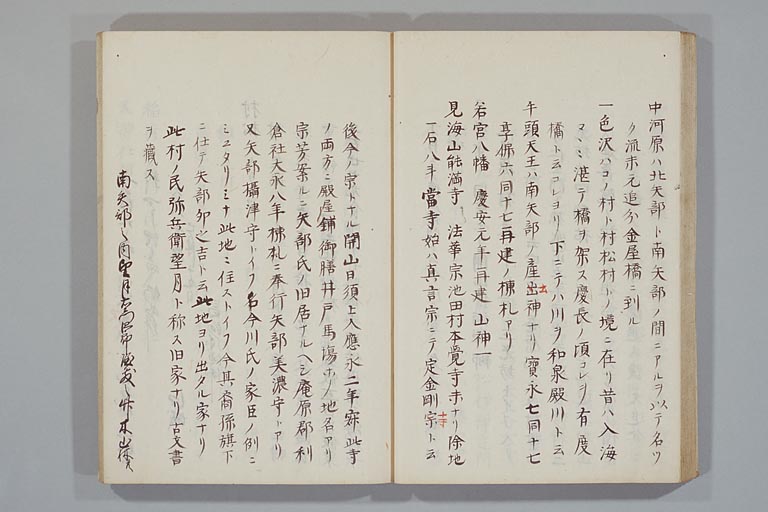 中河原ハ北矢部ト南矢部ノ間ニアルヲ以テ名ツ
ク流末元追分金屋橋ニ到ル
一色沢ハコノ村ト村松村トノ境ニ在リ昔ハ入海
ニ湛テ橋ヲ架ス慶長ノ頃コレヲ有慶
橋ト云コレヨリ下ニテハ川ヲ和泉殿川ト云
牛頭天王ハ南矢部ノ産出神ナリ寳永七同十七
土
享保六同十七再建ノ棟札アリ
若宮八幡 慶安元年再建 山神一
見海山能満寺 法華宗池田村本覺寺末ナリ除地
一石八斗 當寺始ハ真言宗ニテ定金剛宗ト云
寺
後今ノ宗トナル開山日須上人應永二年寂此寺
ノ両方ニ殿屋鋪御膳井戸馬場ホノ地名アリ
宗芳案ルニ矢部氏ノ旧居ナルヘシ庵原郡利
倉社大永八年棟札ニ奉行矢部美濃守トアリ
又矢部攝津守トイフ名今川氏ノ家臣ノ例ニ
ミユタリミナ此地ニ住ストイフ今其裔孫旗下
ニ仕テ矢部卯之吉ト云此地ヨリ出タル家ナリ
此村ノ民弥兵衛望月ト称ス旧家ナリ古文書
ヲ蔵ス
南矢部之内望月